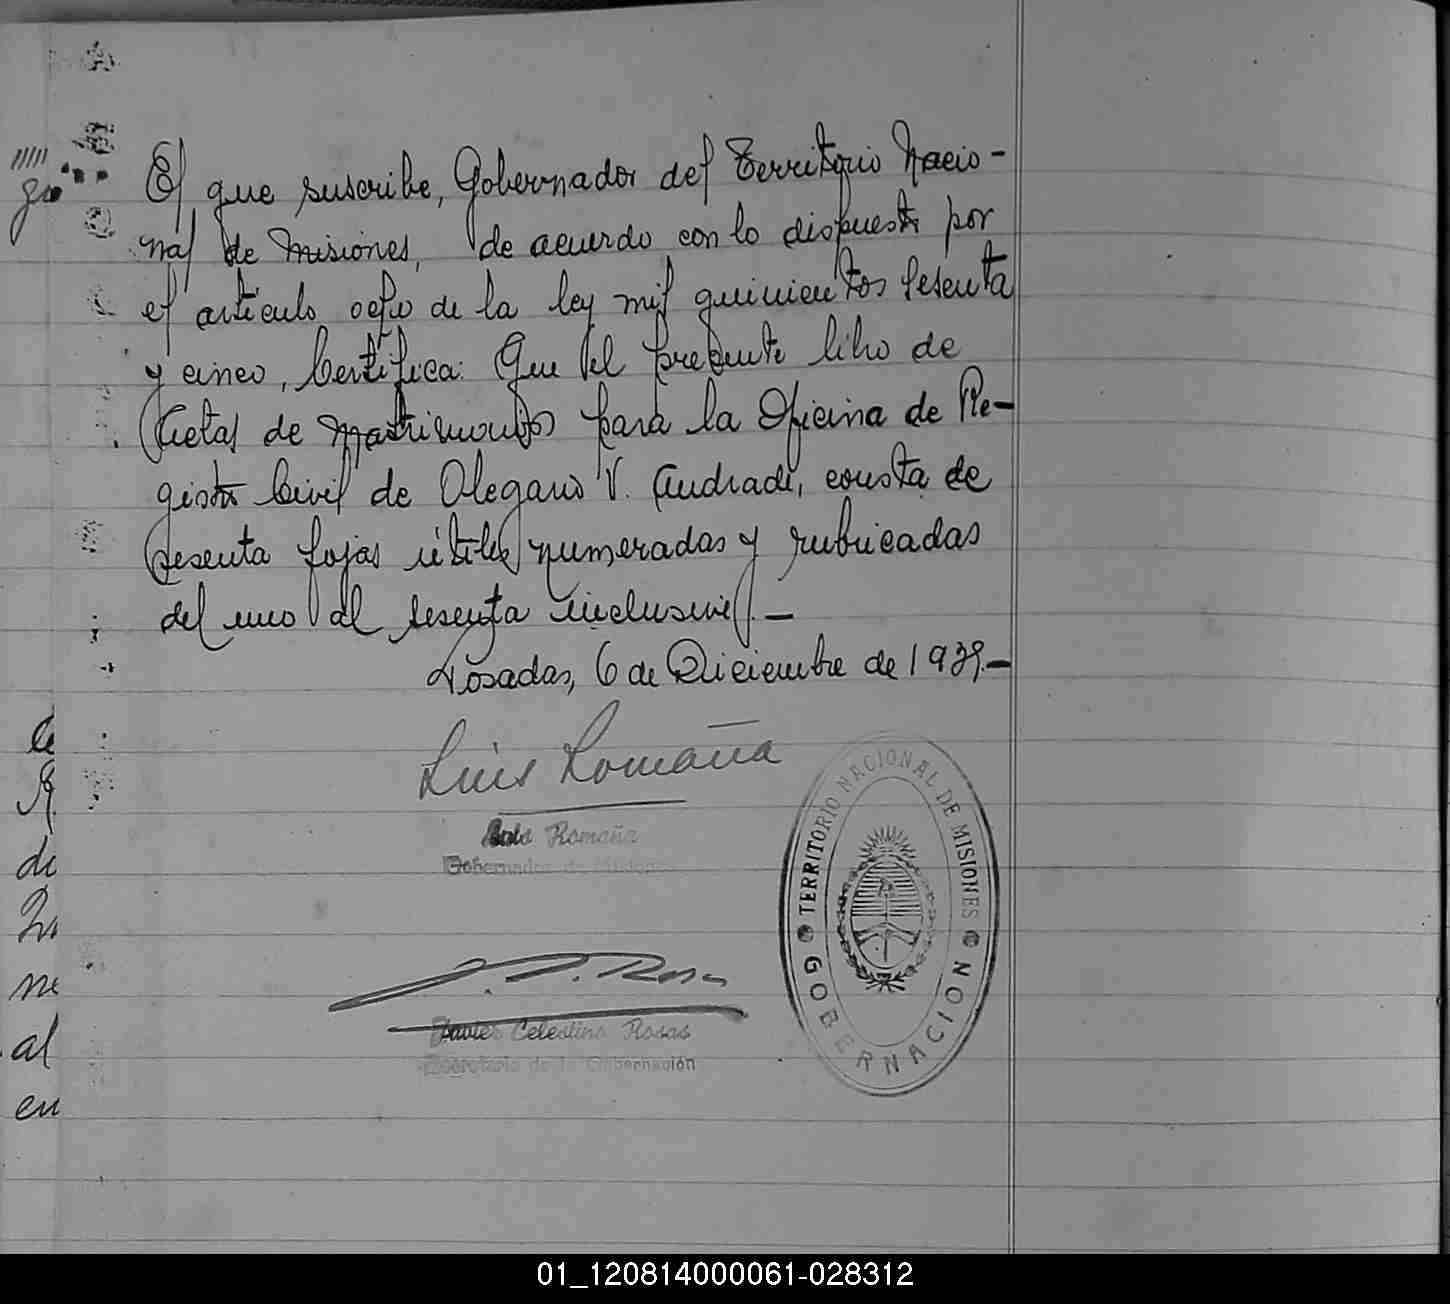 El que suscribe, Gobernador del Territorio Nacio-
nal de Misiones, de acuerdo con lo dispuesto por
el artículo ocho de la ley mil quinientos sesenta
y cinco, Certifica: Que el presente libro de
Actas de Matrimonios para la Oficina de Re-
gistro Civil de Olegario V. Andrade, consta de
sesenta fojas útiles numeradas y rubricadas
del uno al sesenta inclusive.-
Posadas, 6 de Diciembre de 1939.-
Luis Romaña
Romaña
Gobernador de Misiones
J. C. Rosas
Javier Celestino Rosas
Secretario de la Gobernación
TERRITORIO NACIONAL DE MISIONES
GOBERNACION
di
ne
al
en
01_120814000061-028312